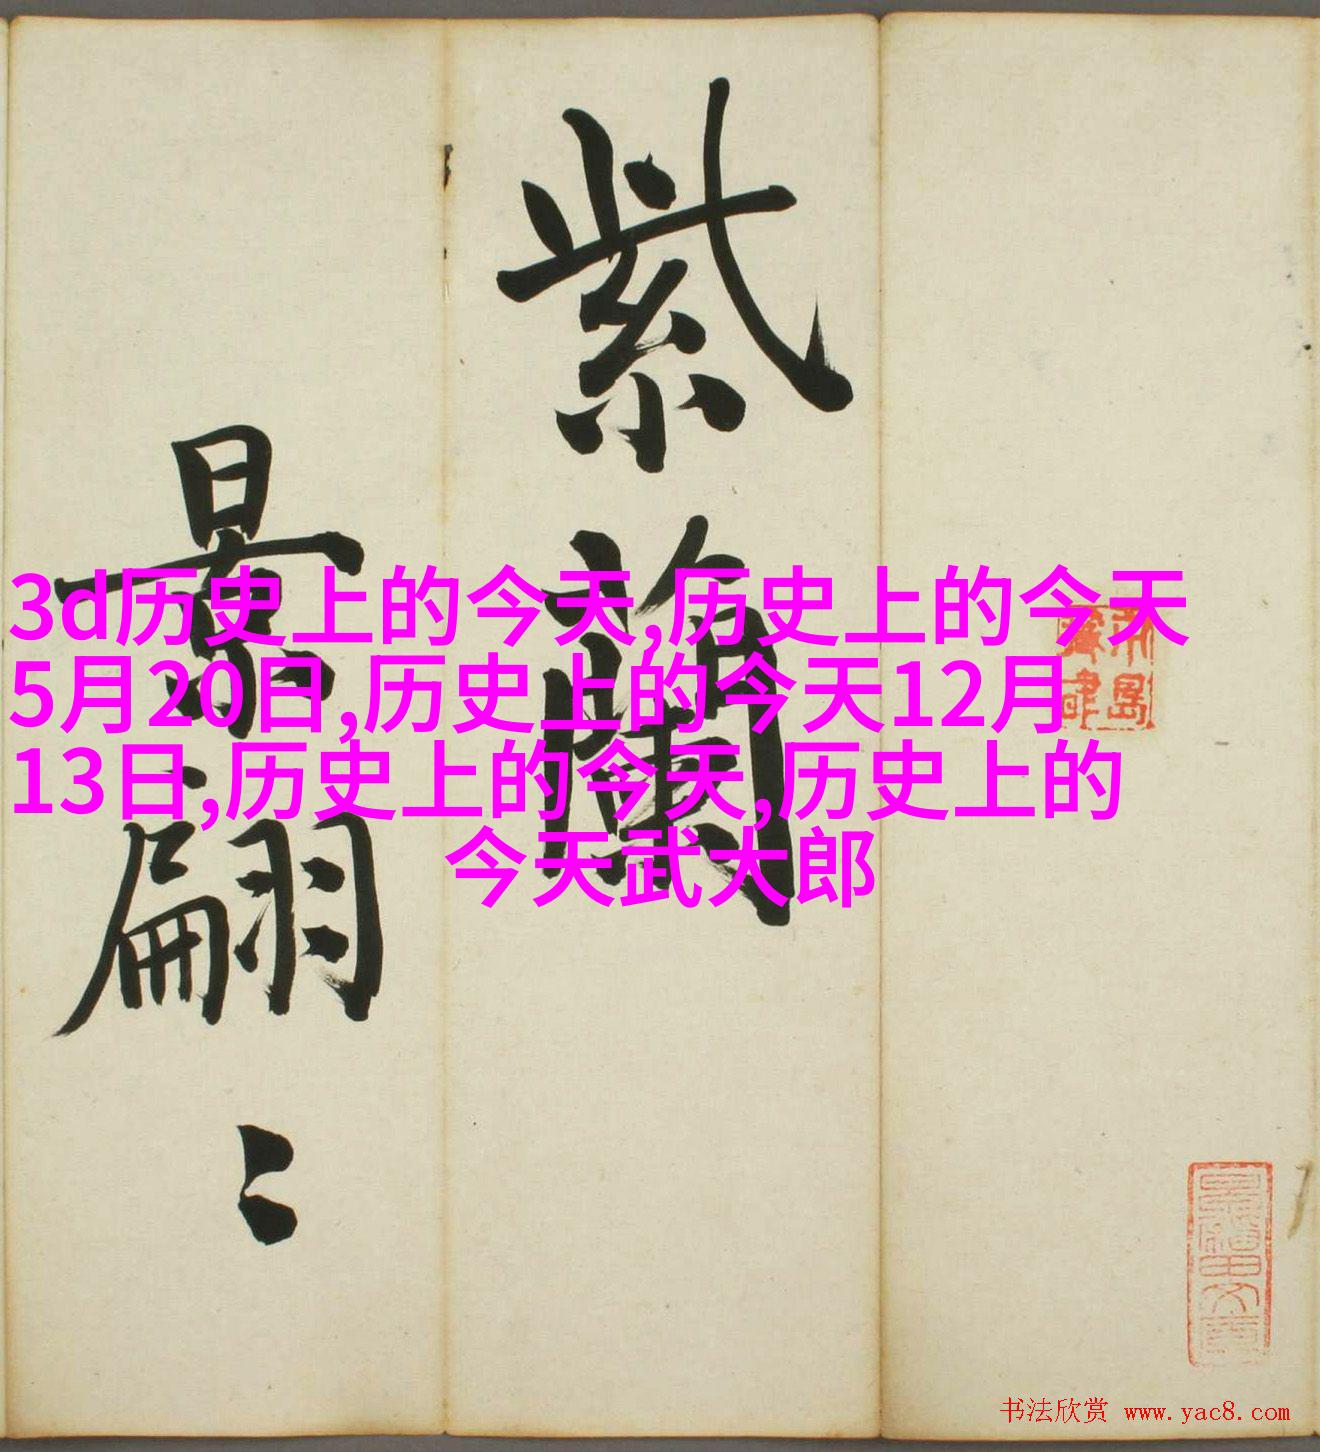 紫蘭
景翩〻
3d历史上的今天,历史上的今天
5月20日,历史上的今天12月
13日,历史上的今天,历史上的
今天武大郎
书法欣赏 www.yac8.com